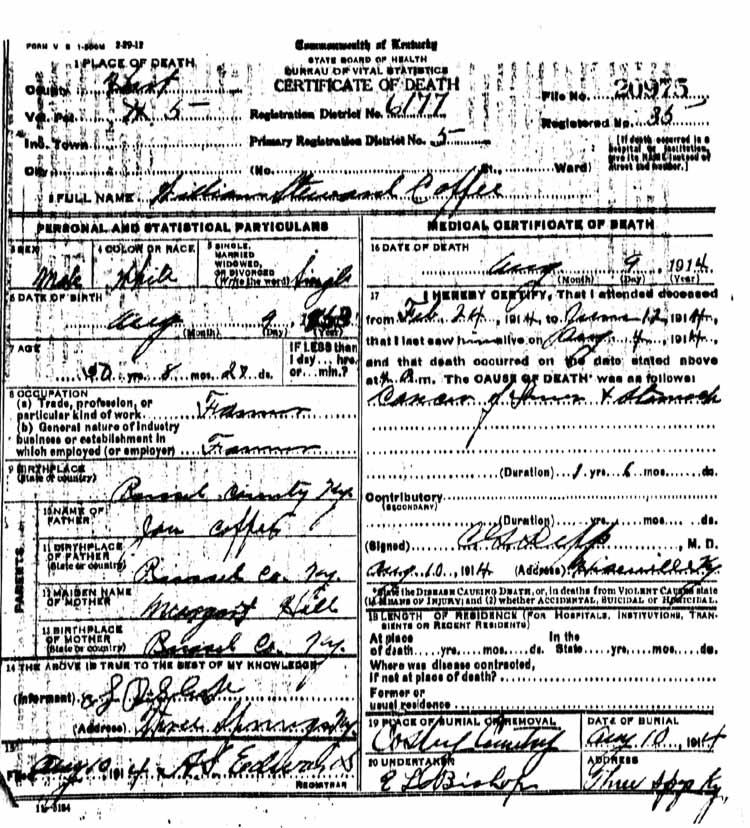 FORM V S 1-500M 2-29-12
Commonwealth of Kentucky
STATE BOARD OF HEALTH
BUREAU OF VITAL STATISTICS
CERTIFICATE OF DEATH
1 PLACE OF DEATH
County Hart
Vot. Pct. 5
Inc. Town
City
Registration District No. 6177
Primary Registration District No. 5
(No. St., Ward)
File No. 20975
Registered No. 35
[If death occurred in a hospital or institution, give its NAME instead of street and number.]
2 FULL NAME William Steward Coffee
PERSONAL AND STATISTICAL PARTICULARS
3 SEX Male
4 COLOR OR RACE White
5 SINGLE, MARRIED, WIDOWED, OR DIVORCED (Write the word) Single
6 DATE OF BIRTH
Aug 9
(Month) (Day) (Year)
7 AGE
yrs. 8 mos. ds.
IF LESS than 1 day ... hrs. or ... min.?
8 OCCUPATION
(a) Trade, profession, or particular kind of work Farmer
(b) General nature of industry business or establishment in which employed (or employer) Farmer
9 BIRTHPLACE
(State or country)
Russel County Ky.
PARENTS
10 NAME OF FATHER Coffee
11 BIRTHPLACE OF FATHER (State or country) Russel Co. Ky.
12 MAIDEN NAME OF MOTHER Margaret Hill
13 BIRTHPLACE OF MOTHER (State or country) Russel Co. Ky.
14 THE ABOVE IS TRUE TO THE BEST OF MY KNOWLEDGE
(Informant)
(Address) Three Springs Ky
15
Filed Aug 10 1914 Edwards
REGISTRAR
11-3184
MEDICAL CERTIFICATE OF DEATH
16 DATE OF DEATH
Aug 9 1914
(Month) (Day) (Year)
17 I HEREBY CERTIFY, That I attended deceased
from Feb 24, 1914, to June 12, 1914,
that I last saw him alive on Aug 4, 1914,
and that death occurred on the date stated above
at m. The CAUSE OF DEATH* was as follows:
Cancer of & Stomach
(Duration) 1 yrs. 6 mos. ds.
Contributory
(SECONDARY)
(Duration) yrs. mos. ds.
(Signed) Depp, M. D.
Aug 10, 1914 (Address) Ky.
*State the DISEASE CAUSING DEATH, or, in deaths from VIOLENT CAUSES state (1) MEANS OF INJURY; and (2) whether ACCIDENTAL, SUICIDAL or HOMICIDAL.
18 LENGTH OF RESIDENCE (FOR HOSPITALS, INSTITUTIONS, TRANSIENTS OR RECENT RESIDENTS)
At place of death yrs. mos. ds. In the State yrs. mos. ds.
Where was disease contracted,
If not at place of death?
Former or
usual residence
19 PLACE OF BURIAL OR REMOVAL
Cosby Cemetery
DATE OF BURIAL
Aug 10, 1914
20 UNDERTAKER
Bishop
ADDRESS
Three Spgs Ky.